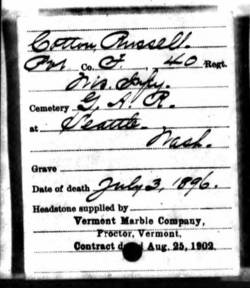 Cotton, Russell.
Pvt. Co. F. , 40 Regt.
Wis. Infy.
Cemetery G. A. R.
at Seattle.
Wash.
Grave
Date of death July 3, 1896.
Headstone supplied by
Vermont Marble Company,
Proctor, Vermont,
Contract Aug. 25, 1902.